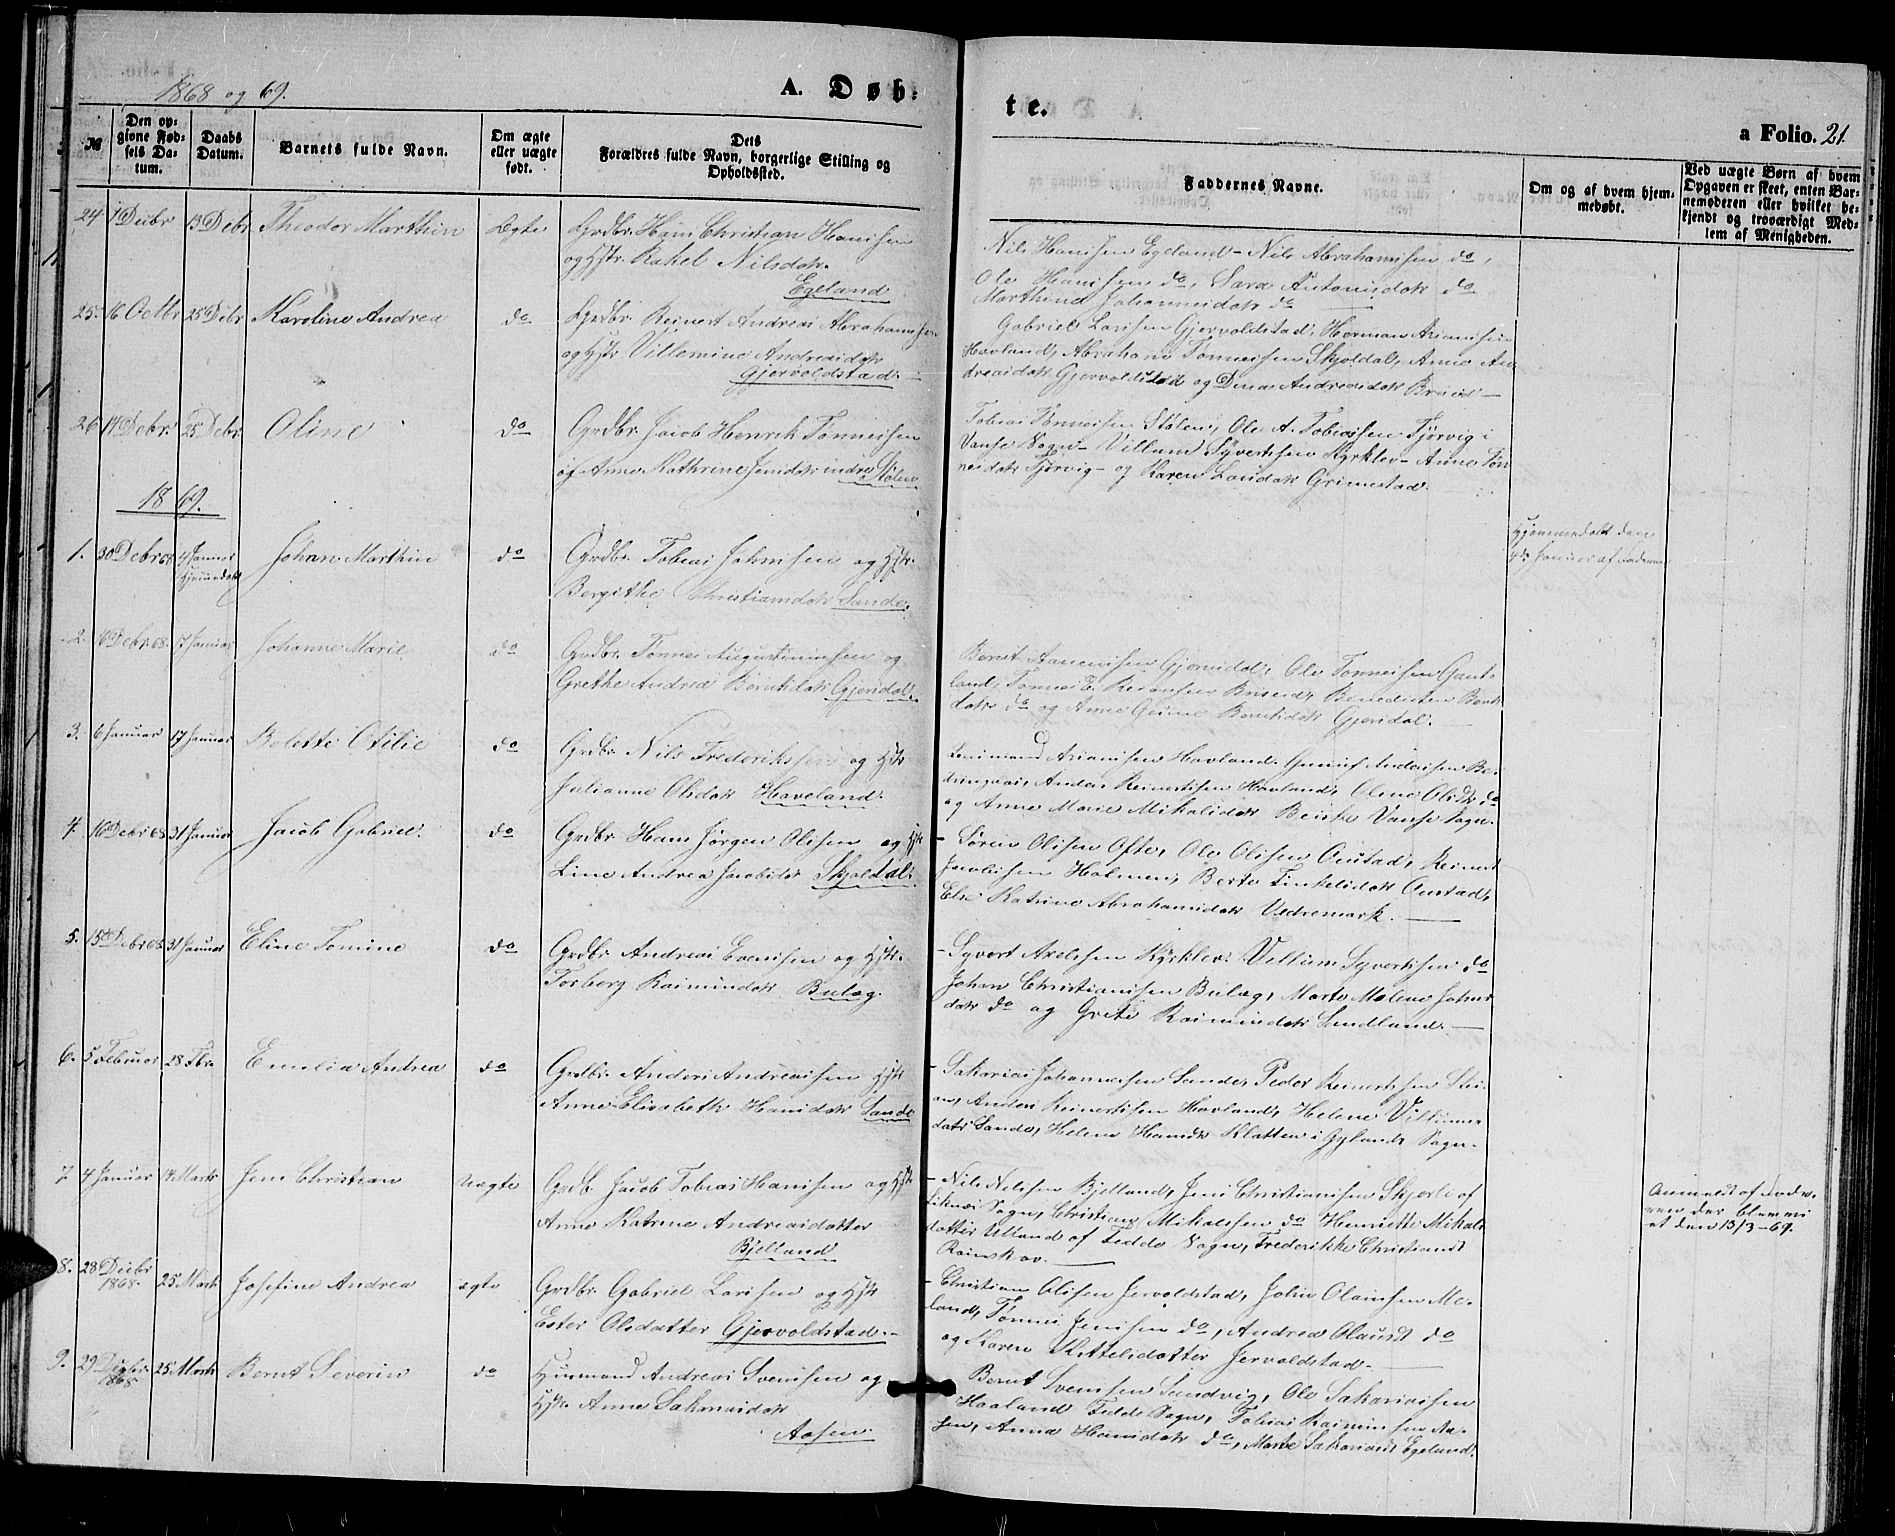 1868 og 69.
A. Døb-
te.
a Folio. 21.
№
Den op-
givne Fød-
sels Da-
tum.
Daabs
Datum.
Barnets fulde Navn.
Om ægte
eller uægte
født.
Dets
Forældres fulde Navn, borgerlige Stilling og
Opholdssted.
Faddernes Navne.
Om og af hvem hjem-
medøbt.
Ved uægte Børn af hvem
Opgaven er skeet, enten Bar-
nemoderen eller hvilket be-
kjendt og troværdigt Med-
lem af Menigheden.
24 1 Decbr 13 Debr Theodor Marthin Ægte Grdbr. Hans Christian Hanssen
og Hstr. Rahel Nilsdatr.
Egeland
Nils Hanssen Egeland - Nils Abrahamsen do,
Ole Hanssen do, Sara Antonsdatr do
Marthine Johannesdatr do
25. 16 Octbr 25 Debr Karoline Andrea do Grdbr. Reinert Andreas Abrahamsen
og Hstr Villemine Andreasdatr
Gjervoldstad.
Gabriel Larssen Gjervoldstad, Herman Arianssen
Havland, Abraham Tønnessen Skjoldal, Anne An
dreasdatr Gjervoldstad og Dina Andreasdatr
26 14 Debr. 25 Debr Oline do Grdbr. Jacob Henrik Tønnessen
og Anne Kathrine Jensdatr indre Stølen
Tobias Tønnessen Stølen, Ole A. Tobiassen Tjørvig i
Vanse Sogn - Villum Syvertsen Kyrklev - Anne Tøn
nesdatr Tjørvig - og Karen Larsdatr Grimestad.
1869.
1. 30 Debr 68 4 Januar Hjemmedøbt Johan Marthin do Grdbr. Tobias Johnsen og Hstr.
Bergithe Christiansdatr Sande.
Hjemmedøbt den
4de Januar af
2. 6 Debr 68. 17 Januar Johanne Marie do Grdbr. Tønnes Augustinussen og
Grethe Andrea Berntsdatr Gjersdal.
Bernt Gjersdal, Ole Tønnessen
land, Tønnes
datr do og Anne Berntsdatr Gjersdal.
3. 6 Januar 17 Januar Bolette Otilie do Grdbr Nils Frederiksen og Hstr
Julianne Olsdatr Haveland.
Arianssen Havland,
Anders Reinertsen Havland, Olene Olsdtr do
og Anne Marie Mikalsdatr Vanse Sogn.
4. 16 Debr 68 31 Januar Jacob Gabriel. do Grdbr Hans Jørgen Olssen og Hstr
Line Andrea Jacobsdtr Skjoldal.
- Søren Olssen Ofte, Ole Olssen Austad, Reinert
Jacobsen Holmen, Berte Tinkelsdatr Austad,
Else Katrine Abrahamsdatr Vedremark.
5. 15 Debr 68 31 Januar Eline Tomine do Grdbr Andreas Evensen og Hstr.
Torborg Raimundatr Bulæg.
- Syvert Axelssen Kyrklev. Villum Syvertsen do
Johan Christianssen Bulæg, Marte Malene Johns
datr do og Grete Raimundatr Sandland.
6. 5 Februar 28 Fbr. Emilia Andrea do Grdbr. Anders Andreassen Hstr
Anne Elisabeth Hansdatr Sande
- Sakarias Johannessen Sande, Peder Reinertsen
Anders Reinertsen Havland, Helene
datr Sande, Helene Hansdtr Klatten i Gylands Sogn.
7. 4 Januar 14 Marts Jens Christian Uægte Grdb. Jacob Tobias Hanssen og Hstr
Anne Katrine Andreasdatter
Bjelland
- Nils Nelssen Bjelland, Jens Christianssen Skjerli af
Liknes Sogn, Christian Mikalssen do Henriette Mikals
datter Ulland af Fedde Sogn, Frederikke Christiansdt
Anmeldt af
der blev
et den 13/3 - 69.
8. 28 Decbr 1868. 25 Marts Josefine Andrea ægte Grdbr. Gabriel Larssen og Hstr
Ester Olsdatter Gjervoldstad.-
- Christian Olssen Jervoldstad, John Olaussen Me-
land, Tønnes Jenssen do, Andrea Olausdt do
og Karen Kittelsdatter Jervoldstad.
9. 29 Decbr. 1868 25 Marts Bernt Severin do Husmand Andreas Svenssen og
Hstr. Anne Sakariasdatr
Aasen.
Bernt Svenssen Sandvig, Ole Sakariassen
Haaland Fedde Sogn, Tobias Raimunsen Aa-
sen, Anna Hansdatr do, Marte Sakariasdt Egeland.